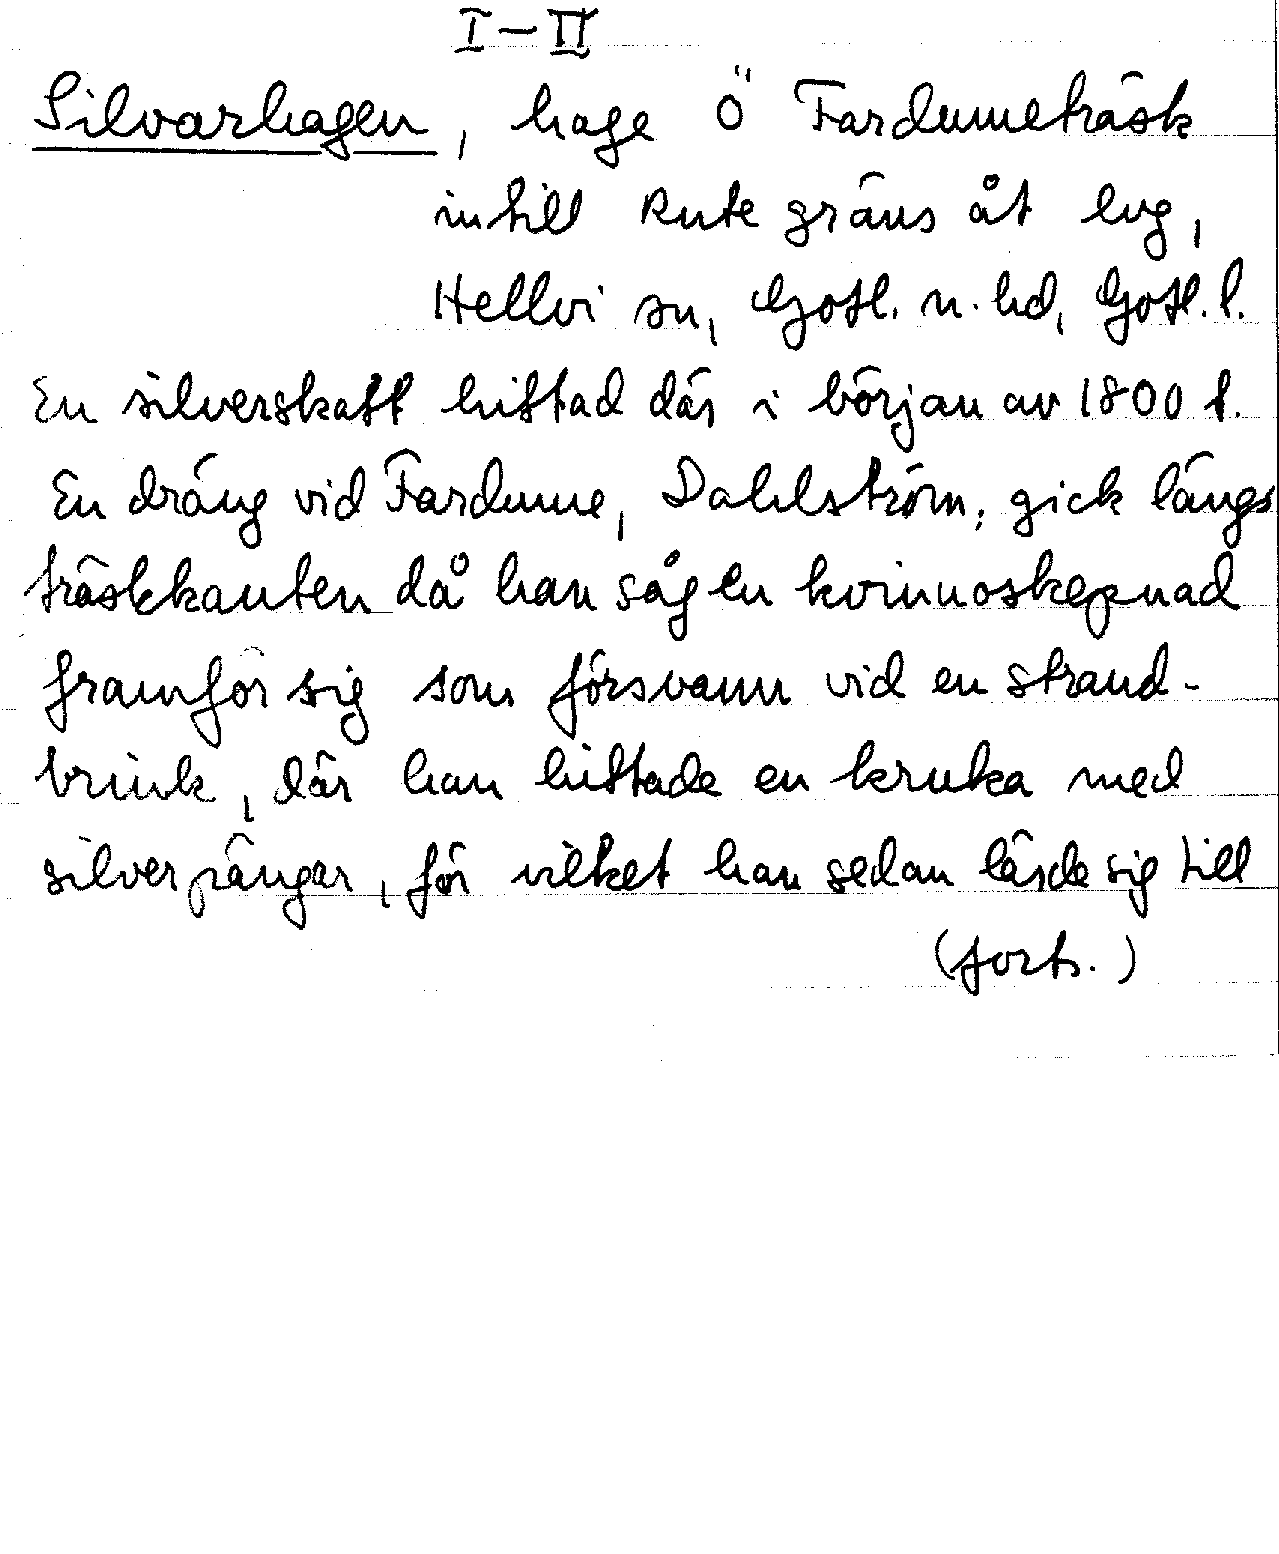 I-II
Silvarhagen, hage Ö Fardumeträsk
intill Rute gräns åt lvg,
Hellvi sn, Gotl. n. hd, Gotl. l.
En silverskatt hittad där i början av 1800 t.
En dräng vid Fardume, Dahlström, gick längs
träskkanten då han såg en kvinnoskepnad
framför sig som försvann vid en strand-
brink, där han hittade en kruka med
silverpängar, för vilket han sedan lärde sig till
(forts.)